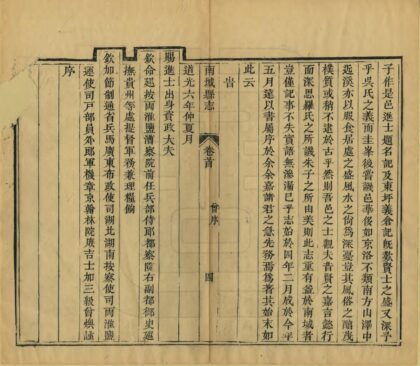 子作是邑進士題名記及東坪義倉記既歎賢士之盛又深予
乎吳氏之義而圭峯後嘗譏邑華侈如京洛不類南方山澤中
溪亦以暇食居處之盛風水之尚為深憂豈其風俗之茂
樸質或稍不逮於古乎然則吾邑之士觀夫昔賢之嘉言懿行
而深思羅氏之所譏朱子之所由美則此志重有益於南城者
豈僅記事不失實語無滲漏已乎志始於四年二月成於今年
五月還以書屬序於余余嘉諸君之急先務焉為著其始末如
此云
南城縣志 卷首 曾序 四
道光六年仲夏月
賜進士出身資政大夫
欽命巡按兩淮鹽漕察院前任兵部侍郎都察院右副都御史巡
撫貴州等處提督軍務兼理糧餉
欽加節制通省兵馬廣東布政使司湖北湖南按察使司兩淮鹽
運使司戶部員外郎軍機章京翰林院庶吉士加三級曾燠謹
序